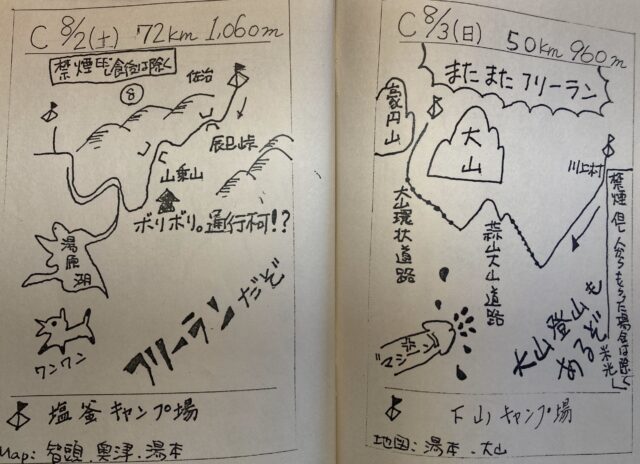 C 8/2(土) 72km 1,060m
禁煙 但し食后は除く
⑧
佐治
辰巳峠
山乗山
ボリボリ。通行可!?
湯原湖
ワンワン
フリーランだぞ
塩釜キャンプ場
Map: 智頭、奥津、湯本
C 8/3(日) 50km 960m
またまたフリーラン
豪円山
大山
川上村
禁煙 但し人からもらった場合は除く
大山環状道路
蒜山大山道路
大山登山もあるぞ
下山キャンプ場
地図:湯本、大山